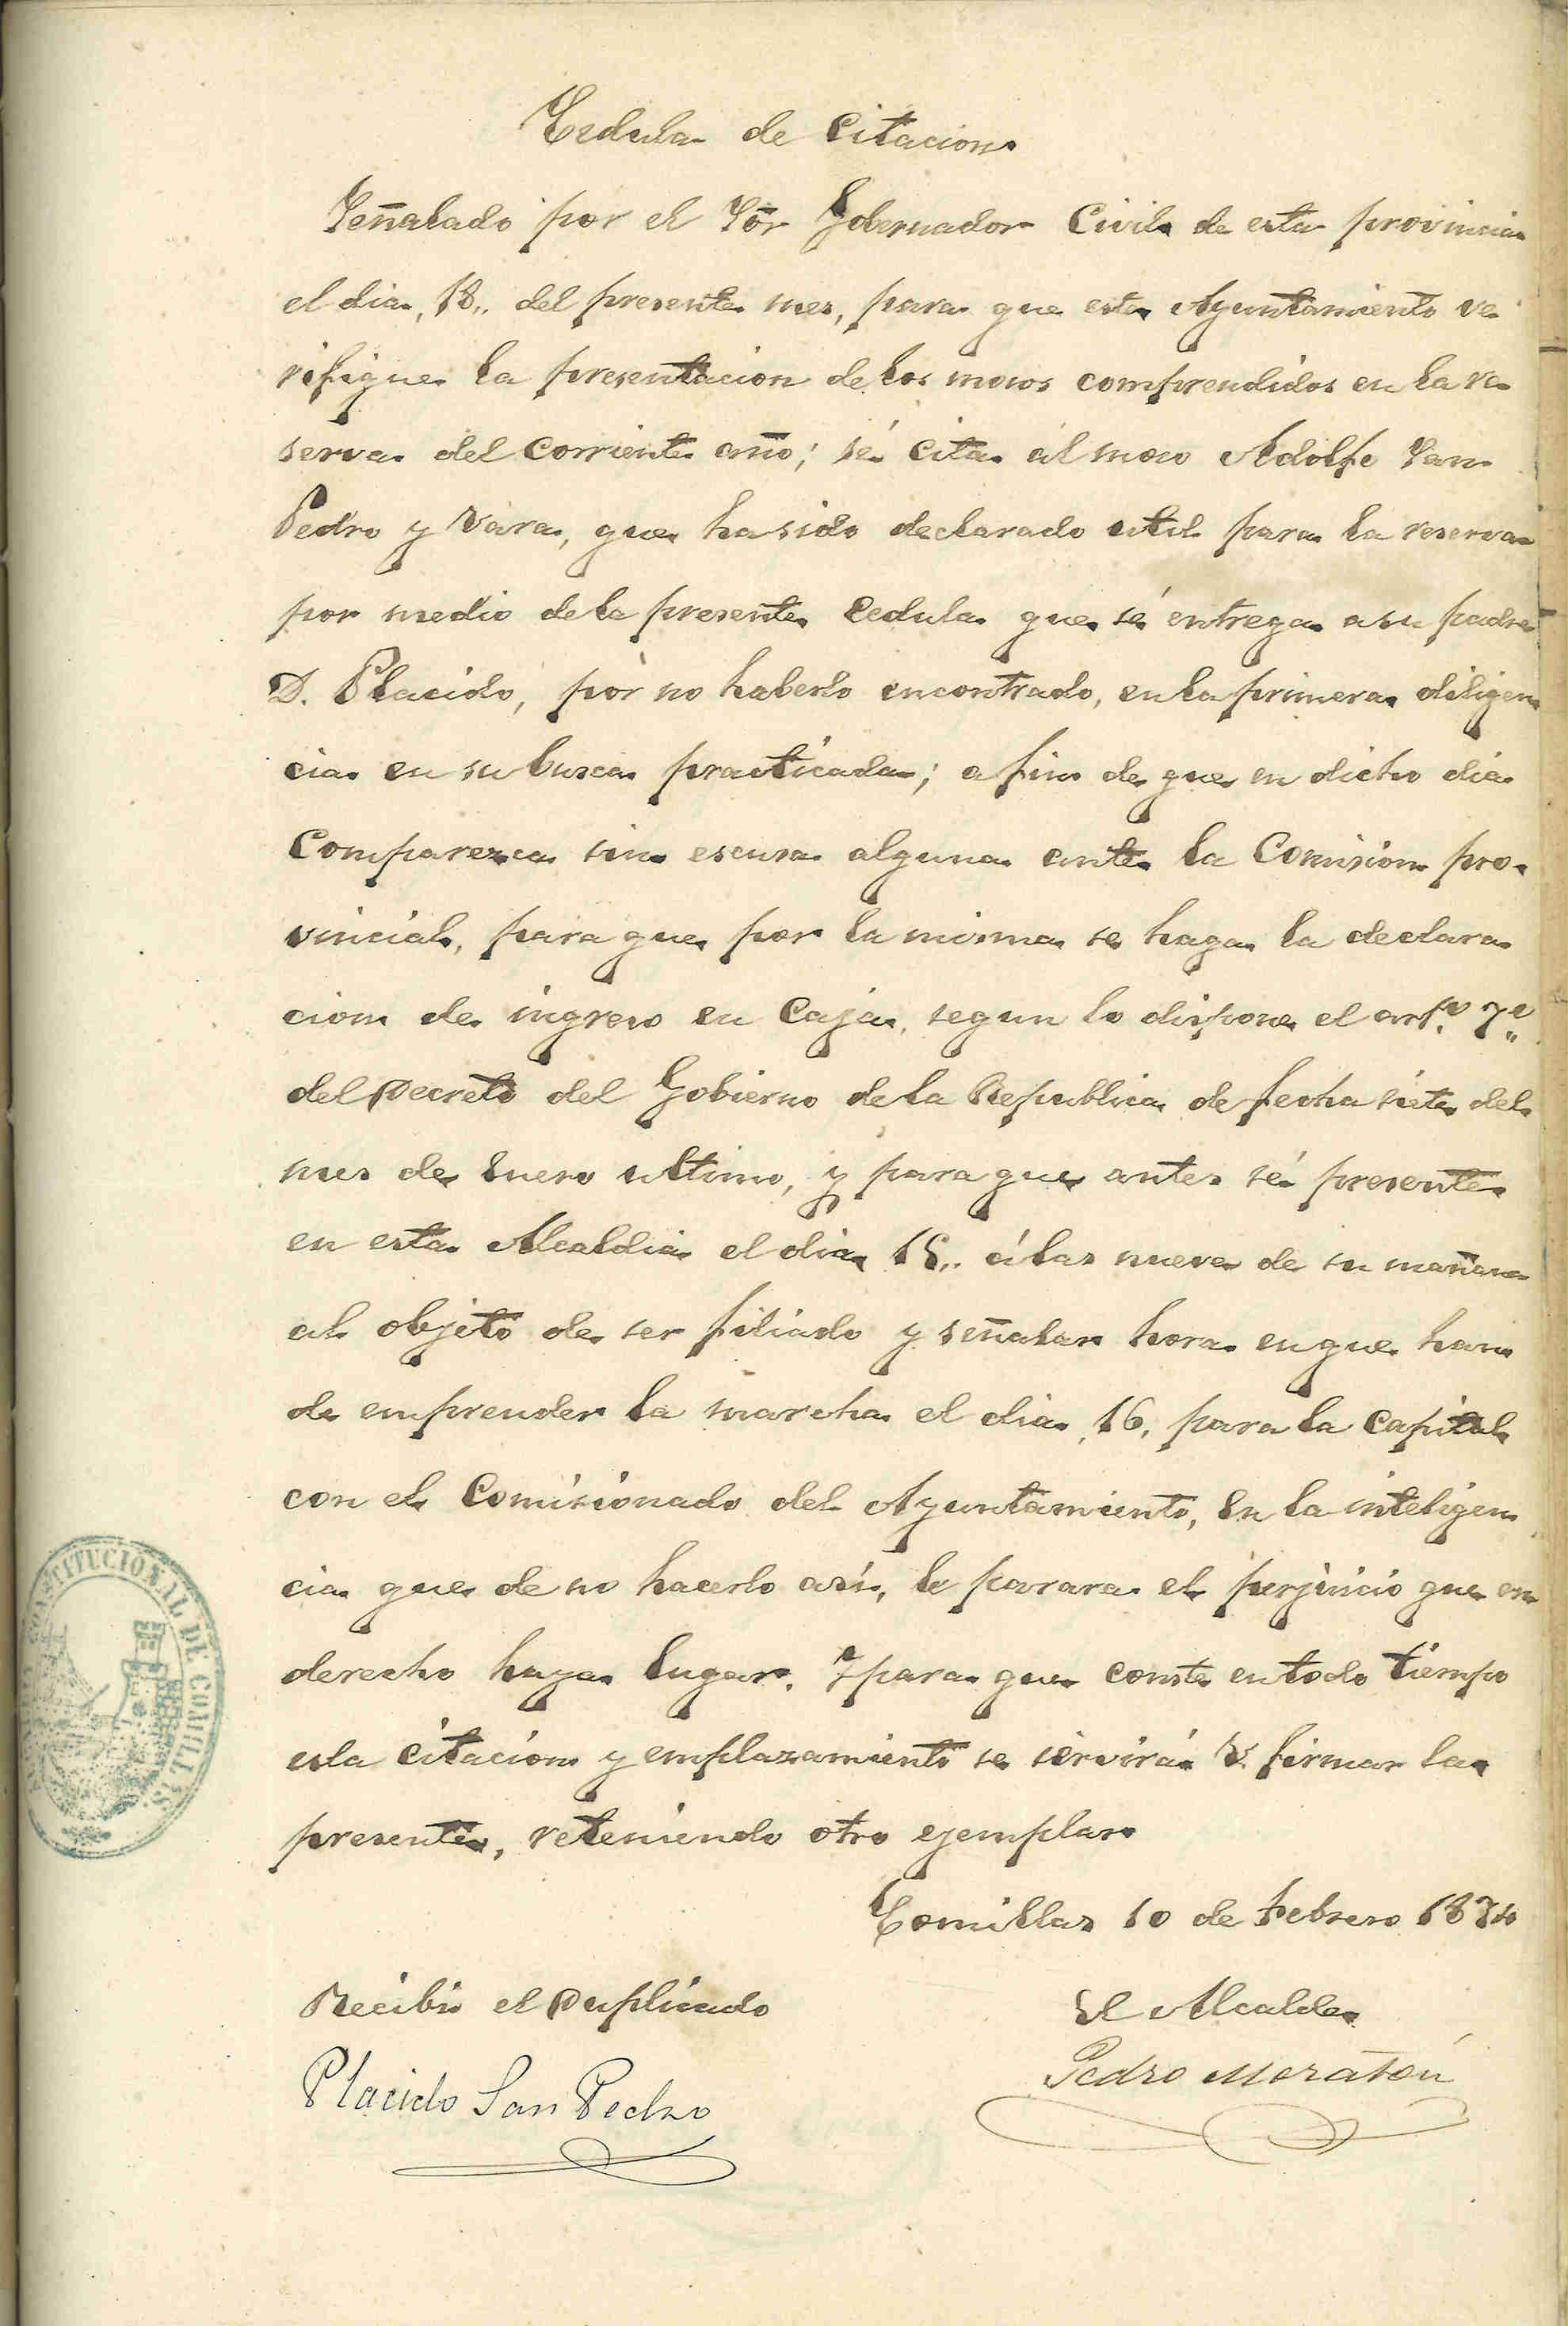 Cedula de Citacion
Señalado por el Sōr Gobernador Civil de esta provincia
el dia, 18,, del presente mes, para que este Ayuntamiento ve
rifique la presentacion de los mozos comprendidos en la re
serva del corriente año; sé cita al mozo Adolfo San
Pedro y Vara, que ha sido declarado util para la reserva
por medio de la presente Cedula que sé entrega a su padre
D. Placido, por no haberlo encontrado, en la primera diligen
cia en su busca practicada; a fin de que en dicho dia
Comparezca sin escusa alguna ante la Comision pro
vincial, para que por la misma se haga la declara
cion de ingreso en Caja, segun lo dispone el artº. 7º
del Decreto del Gobierno de la Republica de fecha siete del
mes de Enero ultimo, y para que antes sé presente
en esta Alcaldia el dia 15,, á las nueve de su mañana
al objeto de ser filiado y señalar hora en que han
de emprender la marcha el dia, 16, para la Capital
con el Comisionado del Ayuntamiento, En la inteligen
cia que de no hacerlo asi, le parara el perjuicio que en
derecho haya lugar. Y para que conste en todo tiempo
esta citacion y emplazamiento se servirá V. firmar la
presente, reteniendo otro ejemplar
Comillas 10 de Febrero 1874
Recibio el Duplicado
El Alcalde
Placido San Pedro
Pedro Moratón
CONSTITUCIONAL DE COMILLAS